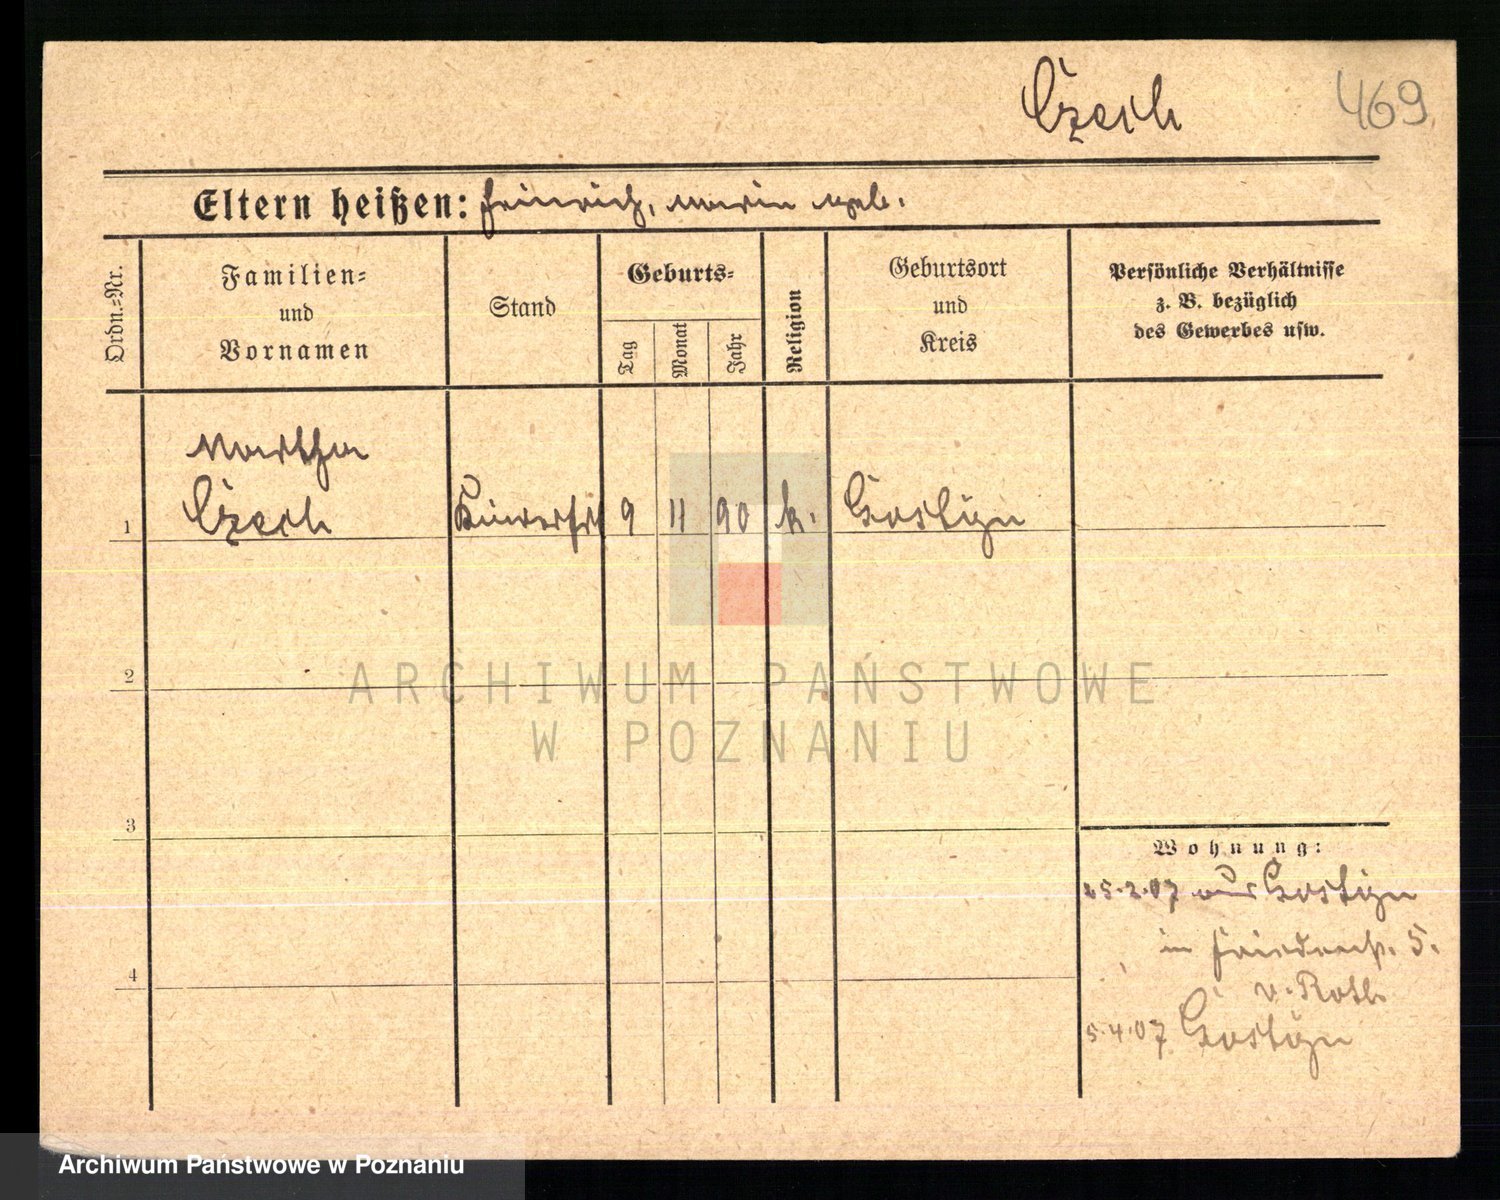 Czech
469
Eltern heißen: Heinrich, Marie geb.
Ordn.=Nr.
Familien=
und
Vornamen
Stand
Geburts=
Tag
Monat
Jahr
Religion
Geburtsort
und
Kreis
Persönliche Verhältnisse
z. B. bezüglich
des Gewerbes usw.
Martha
1 Czech 9 11 90 k. Gostyn
2
ARCHIWUM PAŃSTWOWE
W POZNANIU
3
Wohnung:
25.2.07 aus Gostyn
in 5.
v. Roth
4
5.4.07 Gostyn
Archiwum Państwowe w Poznaniu